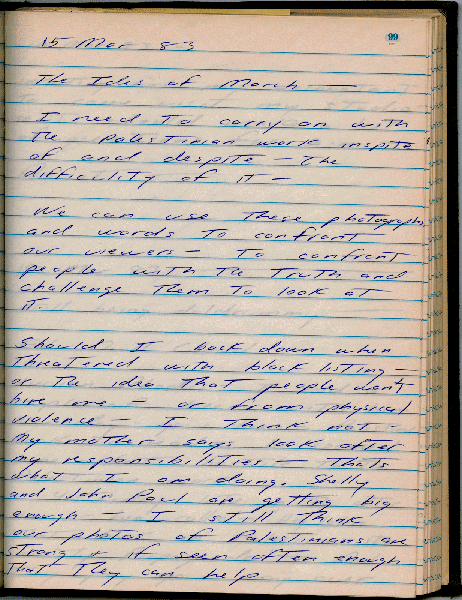 99
15 Mar 83
The Ides of March —
I need to carry on with
the palestinian work inspite
of and despite — the
difficility of it —
We can use these photographs
and words to confront
our viewers — to confront
people with the truth and
challenge them to look at
it.
Should I back down when
threatered with black listing —
or the idea that people don't
hire me — or from physical
violence — I think not -
My mother says look after
my responsibilities — thats
what I am doing. Shelly
and John Paul are getting big
enough — I still think
our photos of Palestinians are
strong + if seen often enough
that they can help